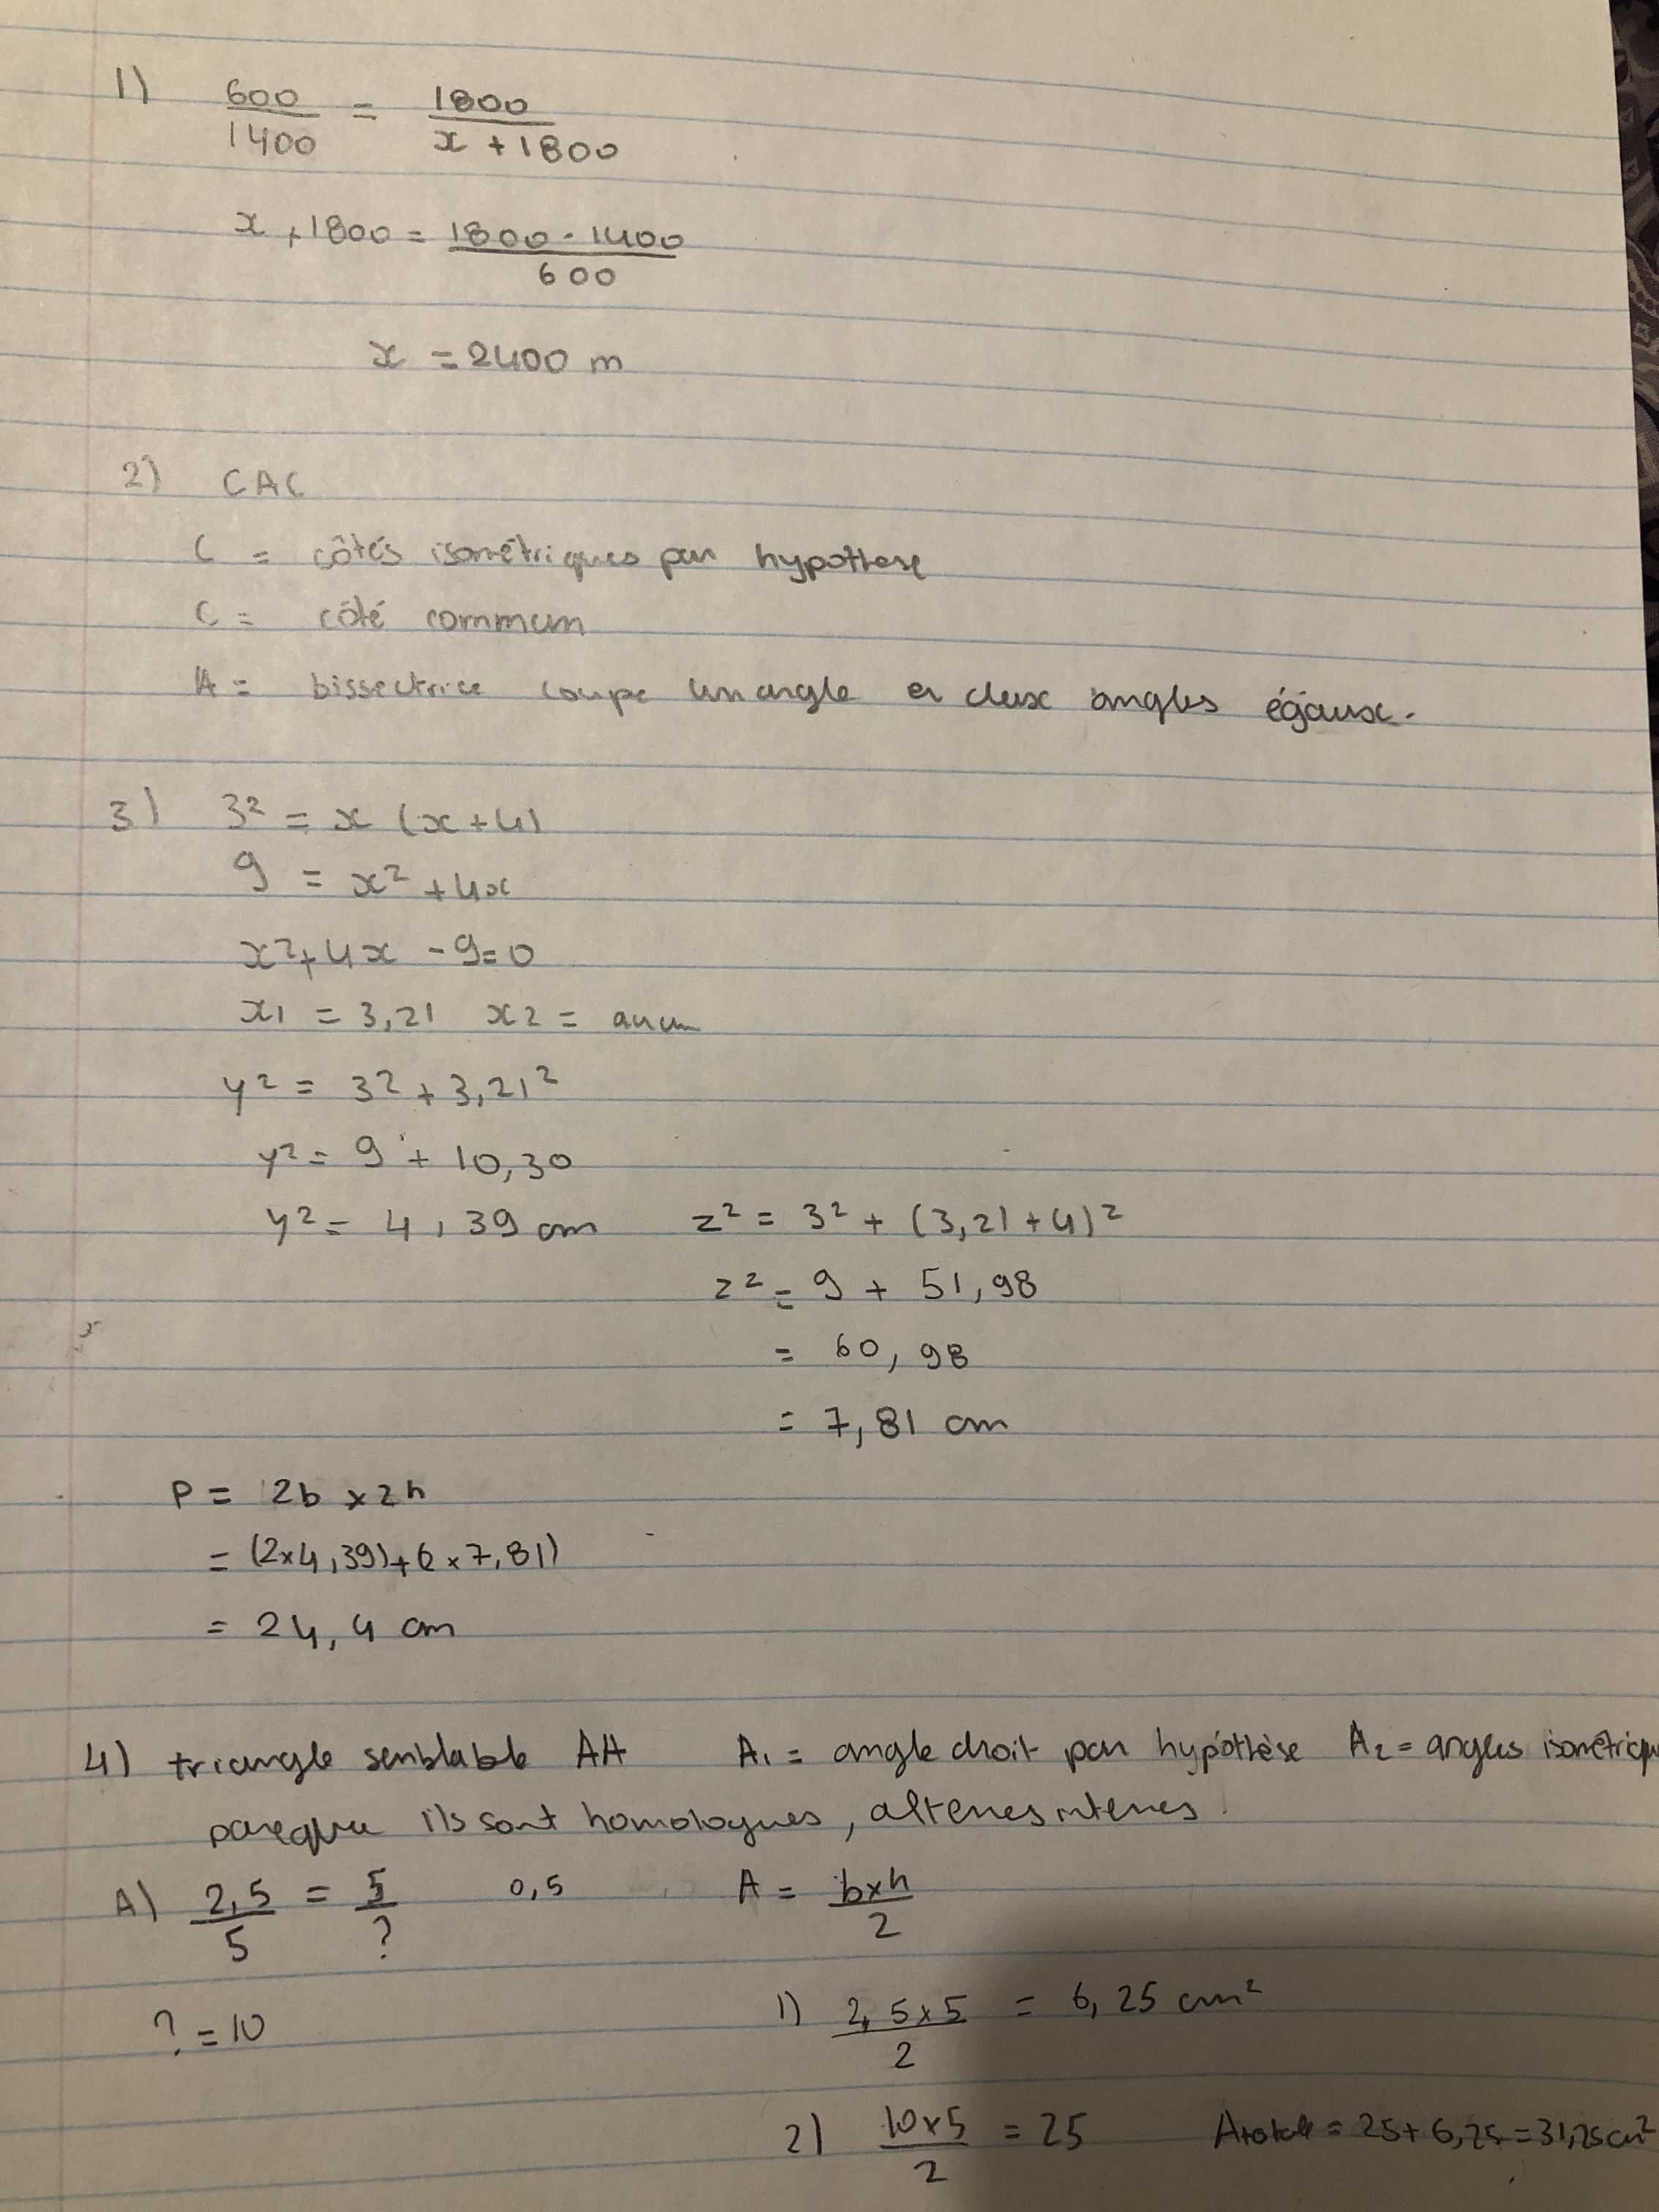 1) 600/1400 = 1800/x+1800
x+1800 = 1800·1400/600
x = 2400 m
2) CAC
C = côtés isométriques par hypothese
C = côté commun
A = bissectrice coupe un angle en deux angles égaux.
3) 3² = x (x+4)
9 = x² + 4x
x²+4x -9=0
x1 = 3,21 x2 = aucun
y² = 3² + 3,21²
y² = 9 + 10,30
y² = 4,39 cm z² = 3² + (3,21+4)²
z² = 9 + 51,98
= 60,98
= 7,81 cm
P = 2b x 2h
= (2x4,39)+(2x7,81)
= 24,4 cm
4) triangle semblable AA A1 = angle droit par hypóthèse A2 = angles isométriqu
parceque ils sont homologues, alternes internes.
A) 2,5/5 = 5/? 0,5 A = bxh/2
? = 10 1) 2,5x5/2 = 6,25 cm²
2) 10x5/2 = 25 Atotale = 25+6,25=31,25cm²